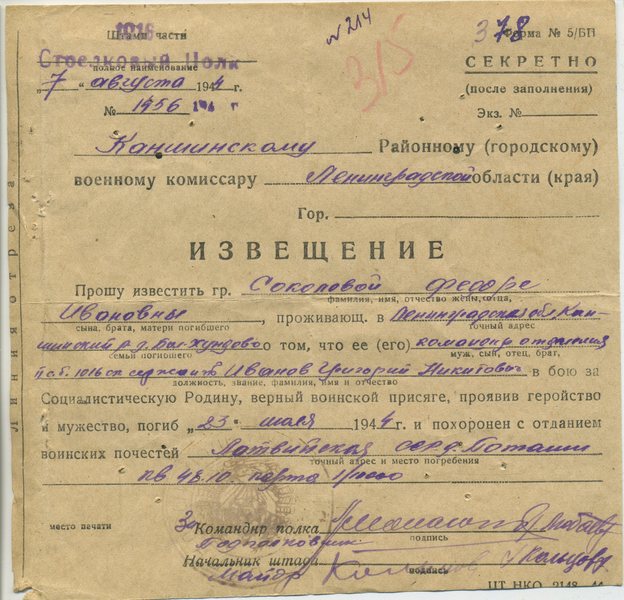 № 214
315
378
1016
Штамп части
Стрелковый Полк
полное наименование
"7" августа 1944 г.
№ 1956 194 г
Форма № 5/БП
СЕКРЕТНО
(после заполнения)
Экз. №
Каншинскому Районному (городскому)
военному комиссару Ленинградской области (края)
Гор.
ИЗВЕЩЕНИЕ
Прошу известить гр. Соколовой Федоре
фамилия, имя, отчество жены, отца,
Ивановны, проживающ. в Ленинградская обл Кан-
сына, брата, матери погибшего
точный адрес
шинский р-д. о том, что ее (его) командир отделения
семьи погибшего
муж, сын, отец, брат,
1016 сп сержант Иванов Григорий Никитович в бою за
должность, звание, фамилия, имя и отчество
Социалистическую Родину, верный воинской присяге, проявив геройство
и мужество, погиб "23" июля 1944 г и похоронен с отданием
воинских почестей Латвийская ССР д. Поташи
точный адрес и место погребения
кв 48.10. карта 1/10000
место печати
Зам Командир полка
Подполковник
подпись
Начальник штаба Кольцов
Майор
подпись
ЦТ НКО 2148—44
Линия отреза